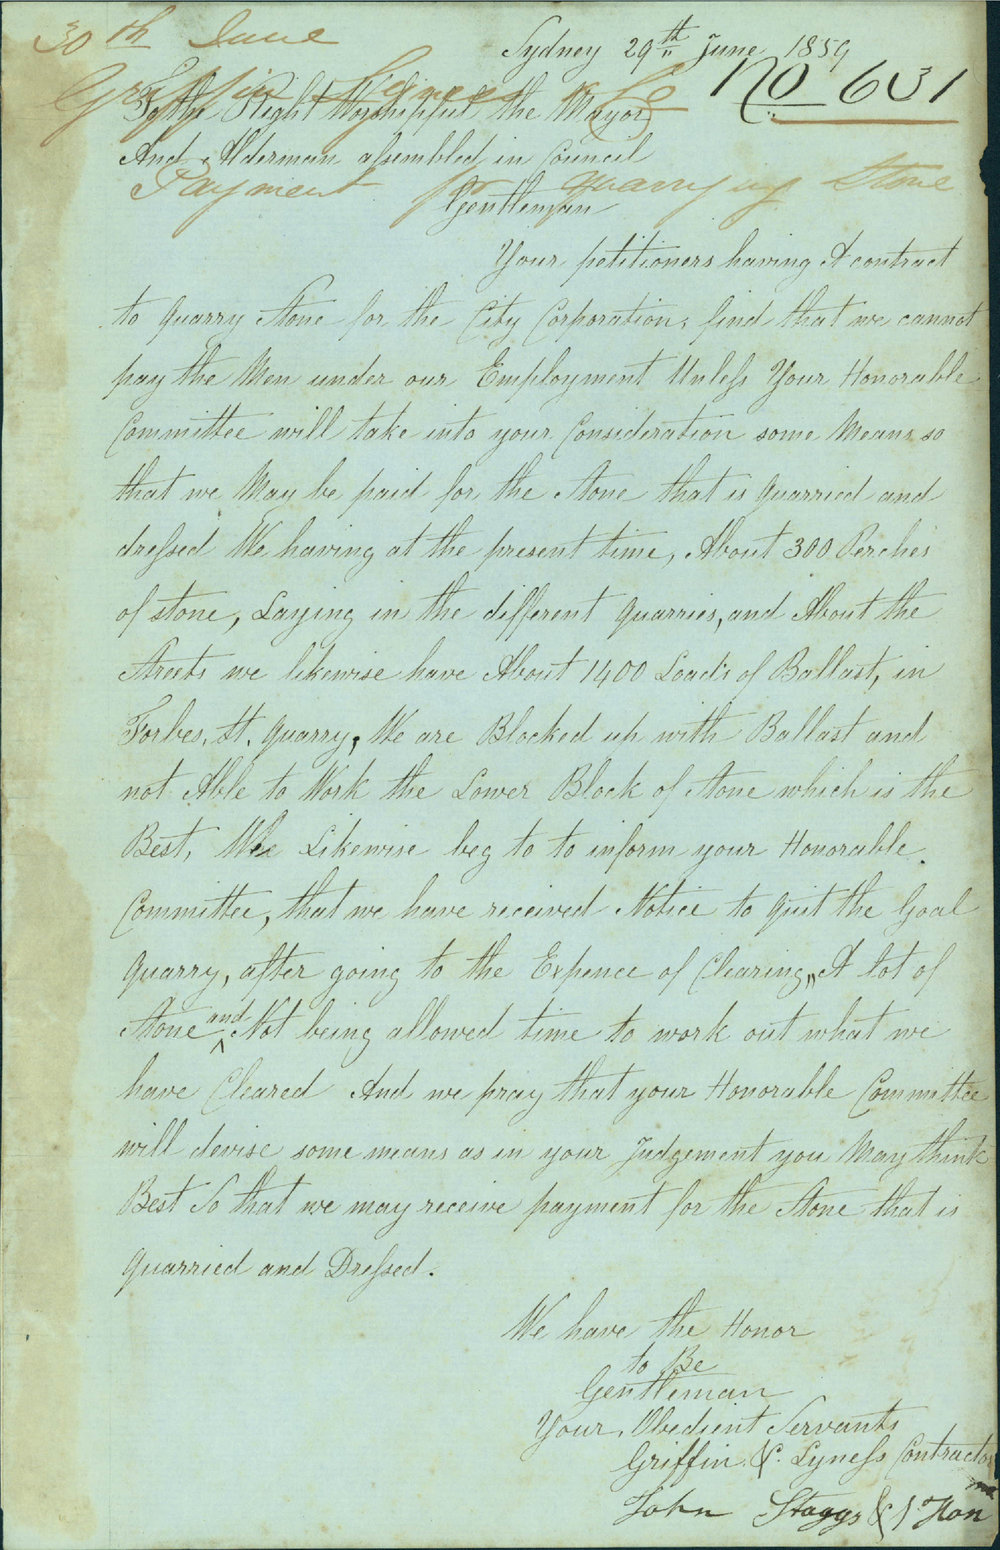 30th June
Sydney 29th June 1859
No 631
Griffin Lyness & Co
To the Right Worshipful the Mayor
And Alderman assembled in Council
Payment for quarrying Stone
Gentleman
Your petitioners having A contract
to quarry Stone for the City Corporation, find that we cannot
pay the Men under our Employment Unless Your Honorable
Committee will take into your Consideration some Means so
that we May be paid for the Stone that is quarried and
dressed We having at the present time, About 300 Perches
of stone, Laying in the different quarries, and About the
Streets we likewise have About 1400 Load's of Ballast, in
Forbes, St, quarry, We are Blocked up with Ballast and
not Able to Work the Lower Block of Stone which is the
Best, We Likewise beg to to inform your Honorable
Committee, that we have received Notice to quit the Goal
quarry, after going to the Expence of Clearing, A lot of
Stone and Not being allowed time to work out what we
have Cleared And we pray that your Honorable Committee
will devise some means as in your Judgement you May think
Best So that we may receive payment for the Stone that is
quarried and Dressed.
We have the Honor
to Be
Gentleman
Your Obedient Servants
Griffin & Lyness Contractors
John Staggs &